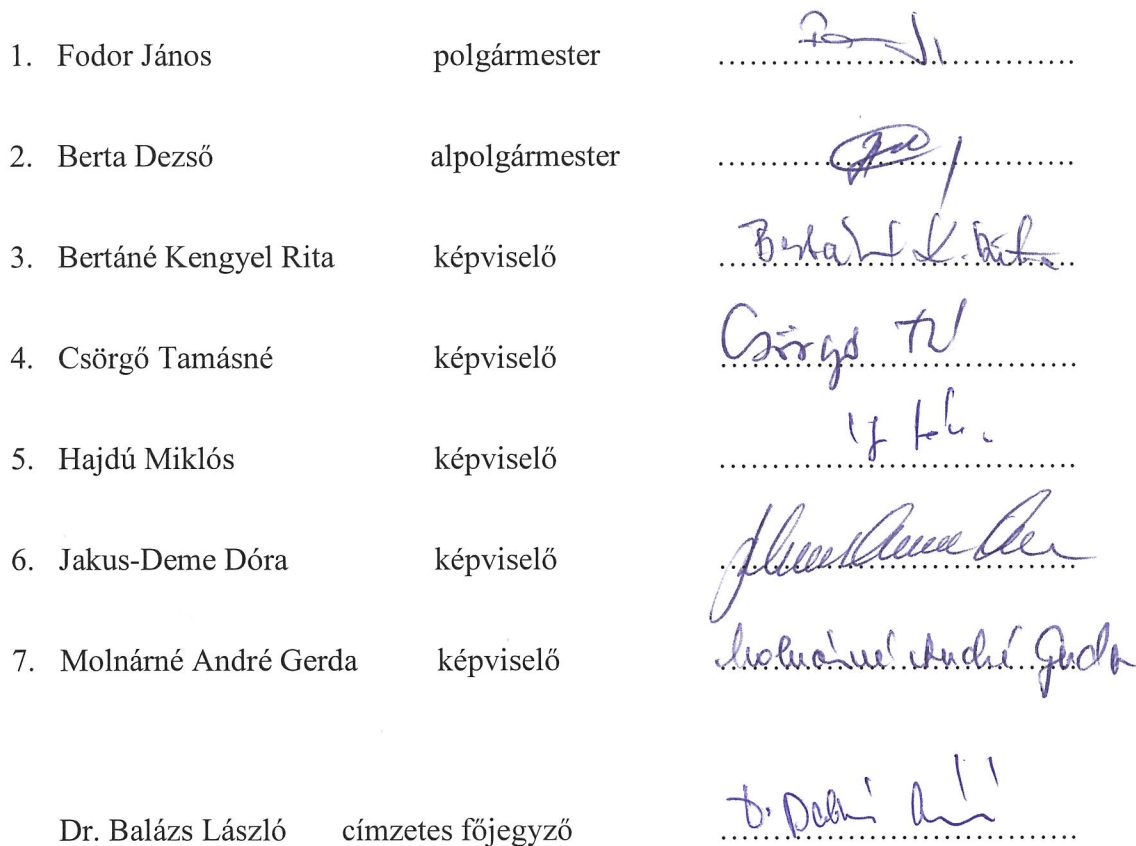 1. Fodor János polgármester ........................
2. Berta Dezső alpolgármester ........................
3. Bertáné Kengyel Rita képviselő Bertáné K. Rita
4. Csörgő Tamásné képviselő Csörgő
5. Hajdú Miklós képviselő ........................
6. Jakus-Deme Dóra képviselő ........................
7. Molnárné André Gerda képviselő Molnárné André Gerda
Dr. Balázs László címzetes főjegyző ........................